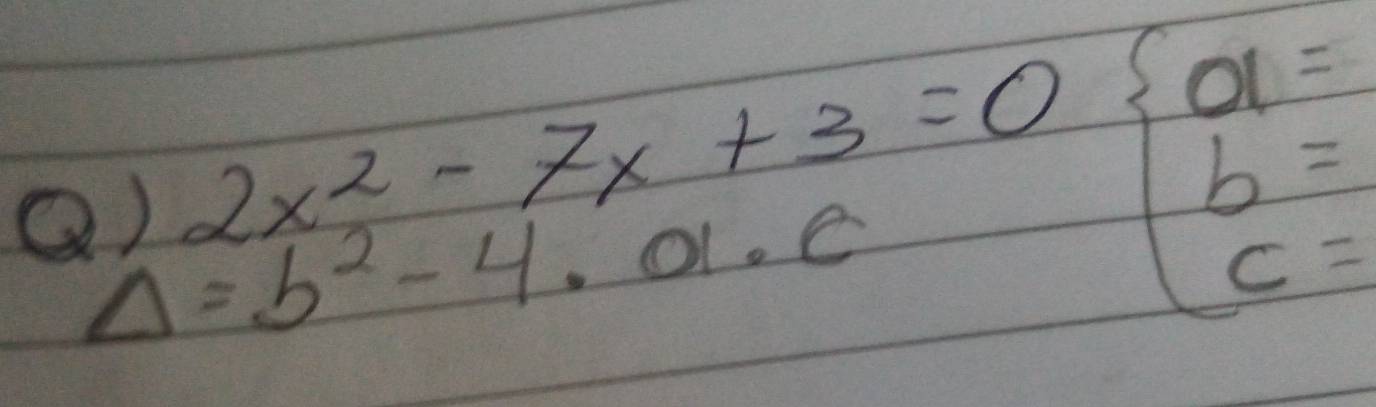 Q) 2x² - 7x + 3 = 0 { a =
b =
Δ = b² - 4 . a . c
c =